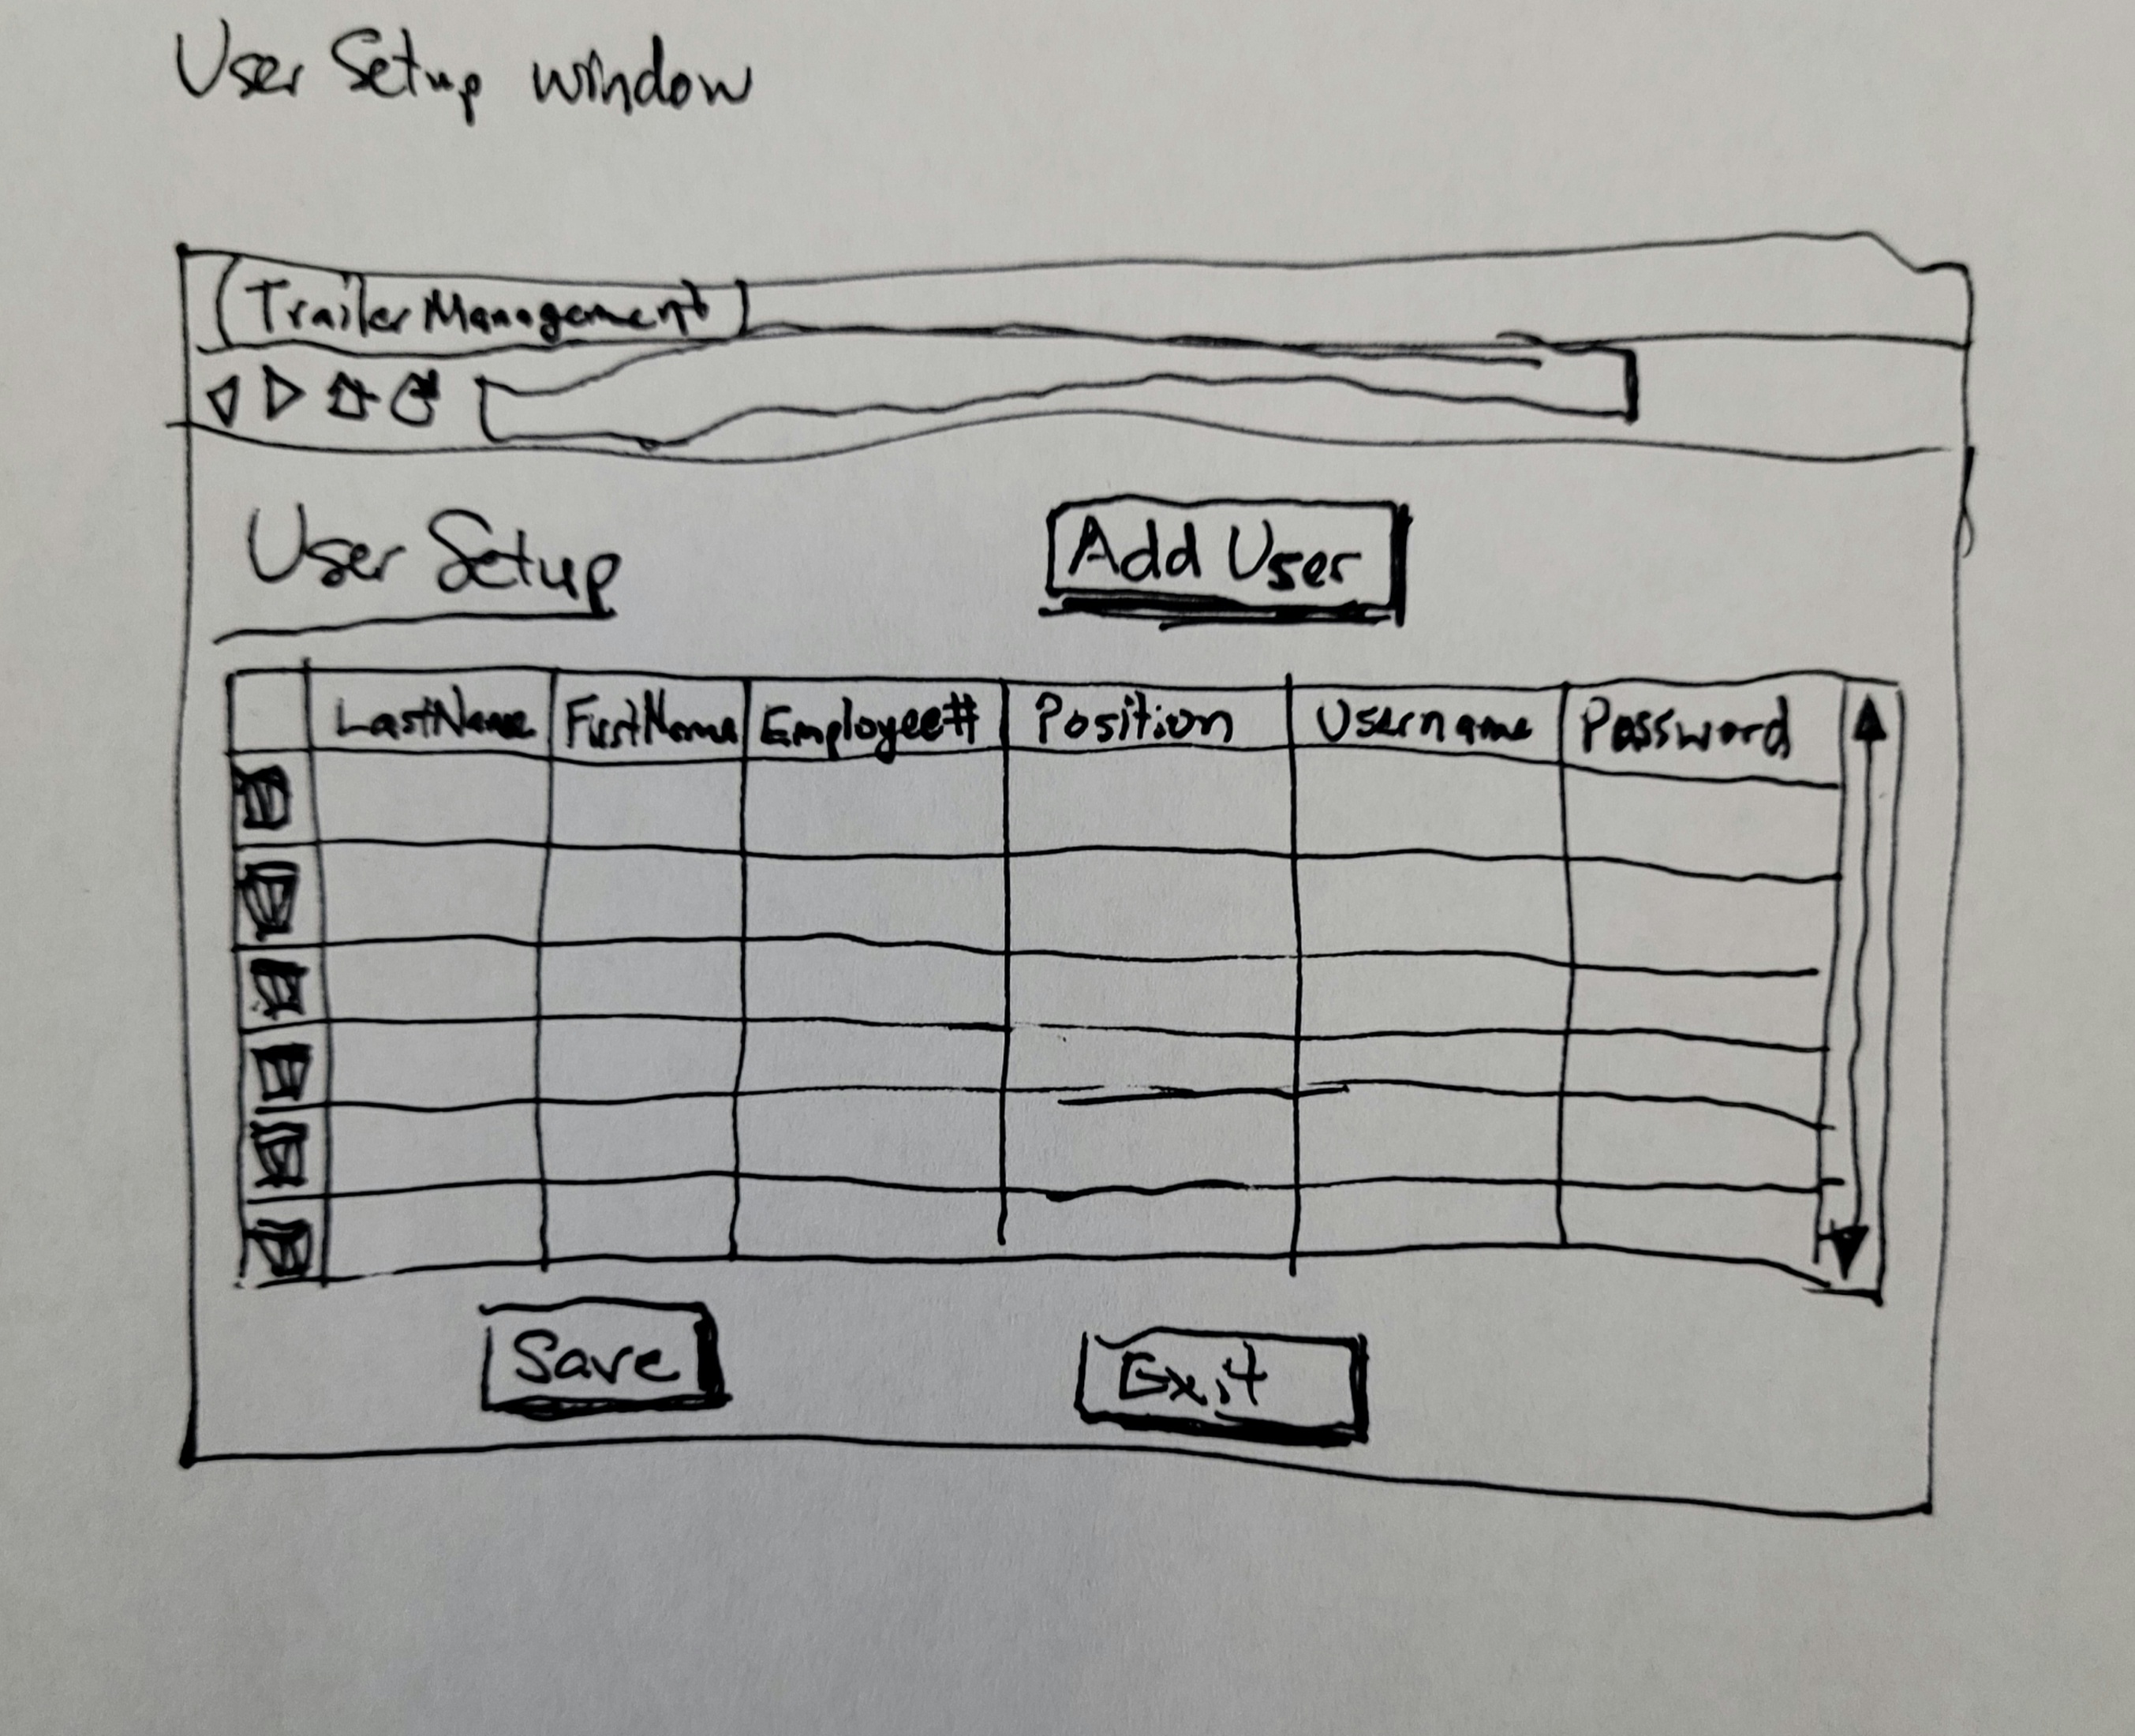 User Setup window
TrailerManagement
User Setup
Add User
LastName FirstName Employee# Position Username Password
Save
Exit